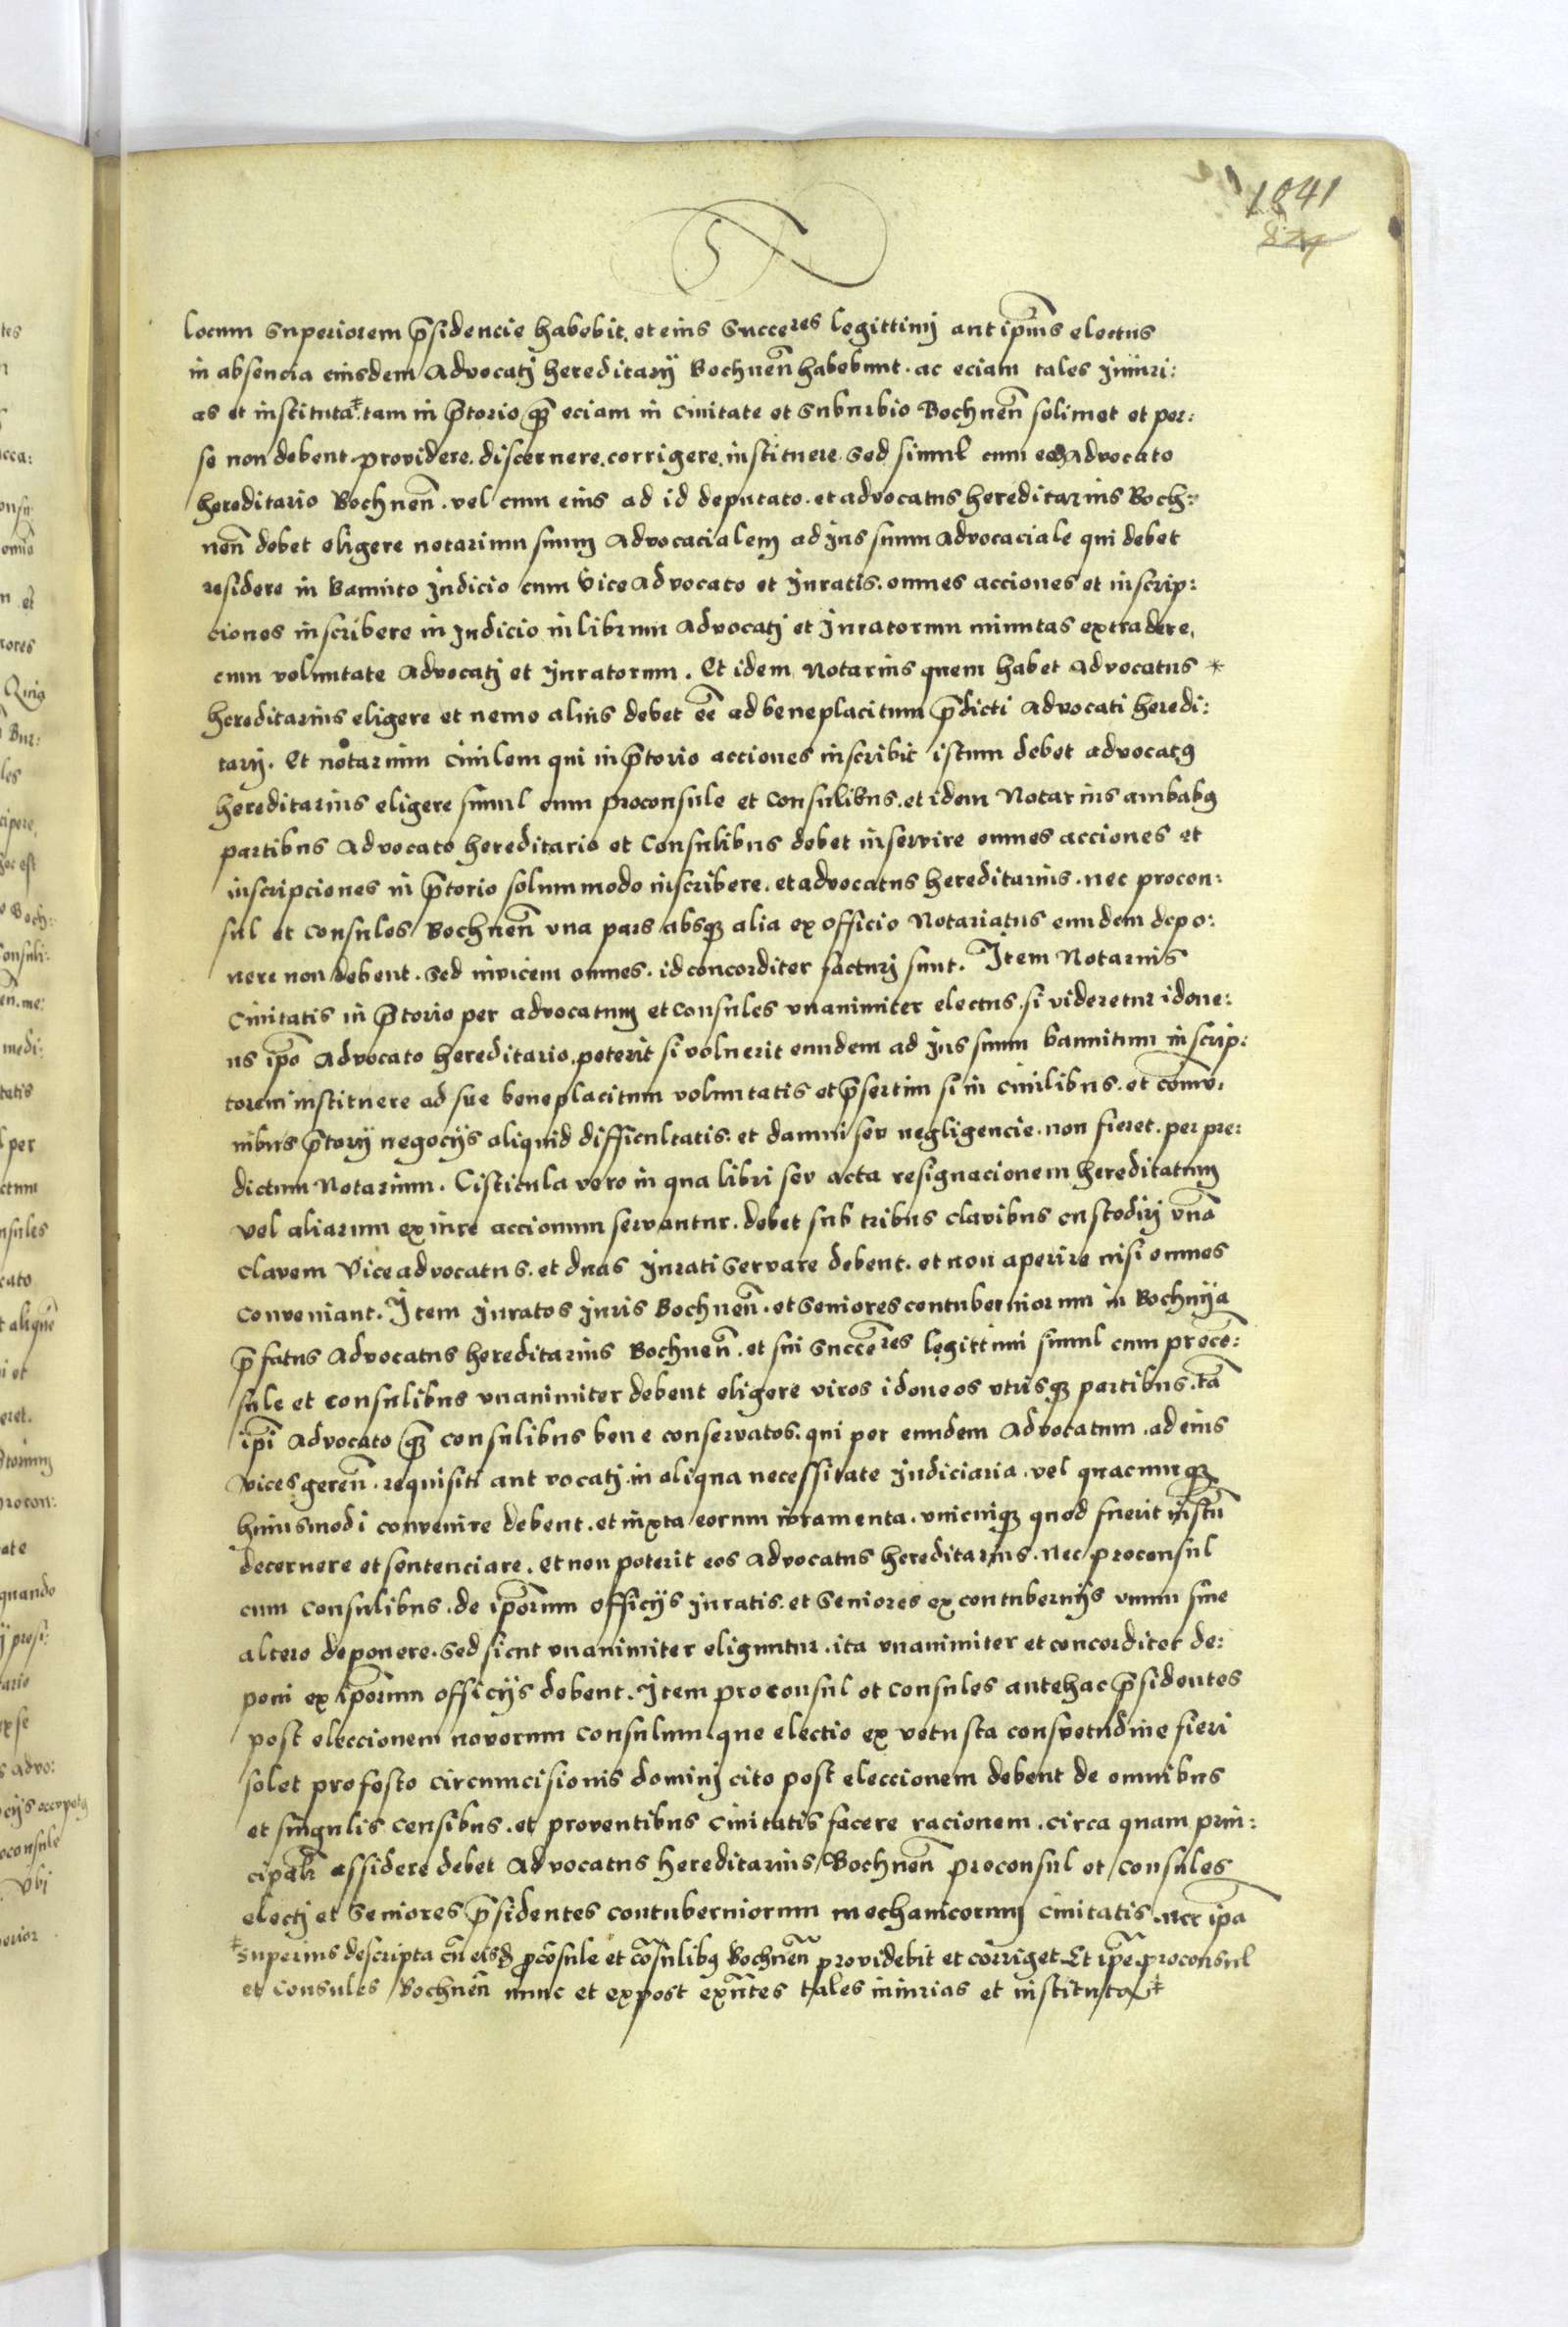 1041
827
locum superiorem p̄sidencie habebit. et eius Succeres legittimj aut ip̄ius electus
in absencia eiusdem Advocatj hereditarij Bochnen̄ habebunt. ac eciam tales Iniuri:
as et instituta‡ tam in p̄torio q̄ȝ eciam in Ciuitate et Suburbio Bochnen̄ solimet et per:
se non debent. providere. discernere. corrigere. instituere. Sed simul cum eod̄ Advocato
hereditario Bochnen̄. vel cum eius ad id deputato. et advocatus hereditarius Boch:
nen̄ debet eligere notarium suum Advocacialem ad Ius suum Advocaciale qui debet
residere in Bannito Judicio cum Vice Advocato et Iuratis. omnes acciones et inscrip:
ciones inscribere in Judicio in librum Advocatj et Iuratorum minutas extradere,
cum voluntate Advocatj et Iuratorum. Et idem Notarius quem habet Advocatus *
hereditarius eligere et nemo alius debet eē ad beneplacitum p̄dicti Advocati heredi:
tarij. Et notarium Ciuilem qui in p̄torio acciones inscribit istum debet advocatꝯ
hereditarius eligere simul cum proconsule et Consulibus. et idem Notarius ambabꝯ
partibus Advocato hereditario et Consulibus debet inservire omnes acciones et
inscripciones in p̄torio solummodo inscribere. et advocatus hereditarius. nec procon:
sul et Consules Bochnen̄ vna pars absqȝ alia ex officio Notariatus eundem depo:
nere non debent. Sed invicem omnes. id concorditer facturj sunt. Item Notarius
Ciuitatis in p̄torio per advocatum et Consules vnanimiter electus. si videretur idone:
us ip̄o Advocato hereditario, poterit si voluerit eundem ad Ius suum bannitum inscrip:
torem instituere ad sue beneplacitum voluntatis et p̄sertim si in Ciuilibus. et com̄u:
nibus p̄torij negocijs aliquid difficultatis. et damni seu negligencie. non fieret. per pre:
dictum Notarium. Cisticula vero in qua libri seu acta resignacionem hereditatum
vel aliarum ex iure accionum servantur. debet sub tribus clavibus custodirj vnā
clavem Viceadvocatus. et duas Iurati Servare debent. et non aperire nisi omnes
Conveniant. Item Iuratos Iuris Bochnen̄. et Seniores contuberniorum in Bochnija
p̄fatus Advocatus hereditarius Bochnen̄. et sui Succeres legittimi simul cum procō:
sule et consulibus vnanimiter debent eligere viros idoneos vtrisqȝ partibus. tā
ip̄i Advocato q̄ȝ consulibus bene conservatos. qui per eundem Advocatum. ad eius
vices geren̄. requisiti aut vocatj. in aliqua necessitate Judiciaria. vel quacunqȝ
huiusmodi convenire debent. et iuxta eorum iuramenta. vnicuiqȝ quod fuerit iustū
decernere et sentenciare. et non poterit eos Advocatus hereditarius. nec proconsul
cum Consulibus. de ip̄orum officijs Iuratis. et Seniores ex contubernijs vnum sine
altero deponere. Sed sicut vnanimiter eliguntur. ita vnanimiter et concorditer de:
poni ex ip̄orum officijs debent. Item proconsul et Consules antehac p̄sidentes
post eleccionem novorum Consulum. que electio ex vetusta consvetudine fieri
solet profesto Circumcisionis dominj cito post eleccionem debent de omnibus
et singulis Censibus. et proventibus Ciuitatis facere racionem. circa quam prin:
cipalr̄ assidere debet Advocatus hereditarius Bochnen̄ proconsul et consules
electj et Seniores p̄sidentes contuberniorum mechanicorum Ciuitatis. nec ip̄a
‡Superius descripta cū eisđ p̄cōsule et cōsulibꝯ Bochnen̄ providebit et corriget. Et ip̄e proconsul
et Consules Bochnen̄ nunc et expost exn̄tes tales iniurias et instituta‡